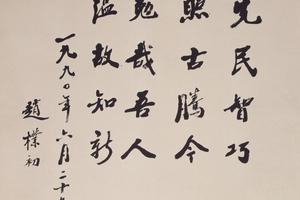 先民智巧
照古騰今
勉哉吾人
温故知新
一九九〇年六月二十
趙樸初